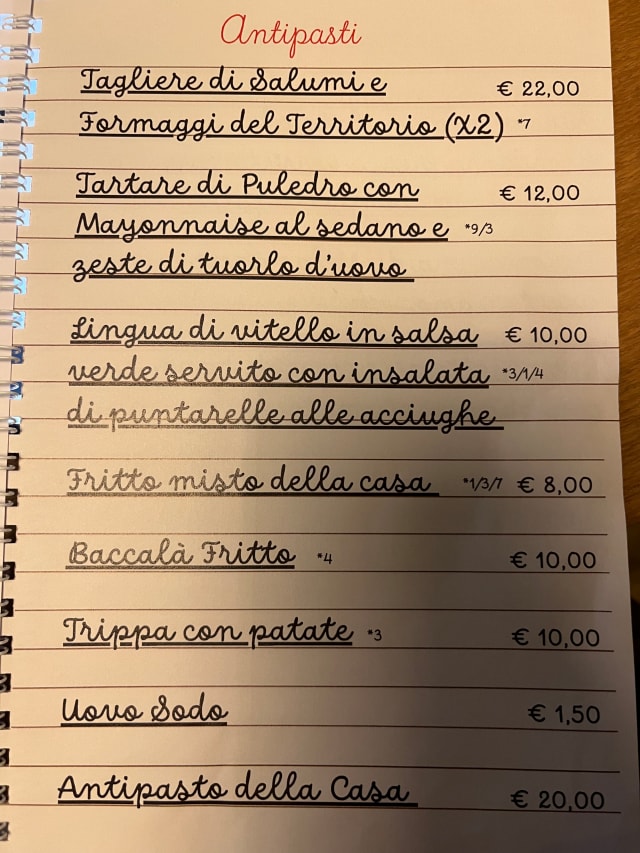 Antipasti
Tagliere di Salumi e € 22,00
Formaggi del Territorio (X2) *7
Tartare di Puledro con € 12,00
Mayonnaise al sedano e *9/3
zeste di tuorlo d'uovo
Lingua di vitello in salsa € 10,00
verde servito con insalata *3/1/4
di puntarelle alle acciughe
Fritto misto della casa *1/3/7 € 8,00
Baccalà Fritto *4 € 10,00
Trippa con patate *3 € 10,00
Uovo Sodo € 1,50
Antipasto della Casa € 20,00